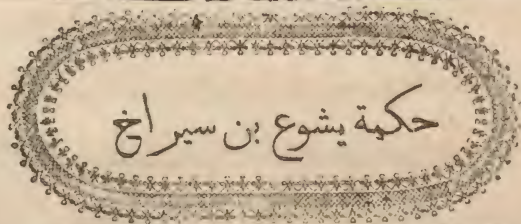 حكمة يشوع بن سيراخ